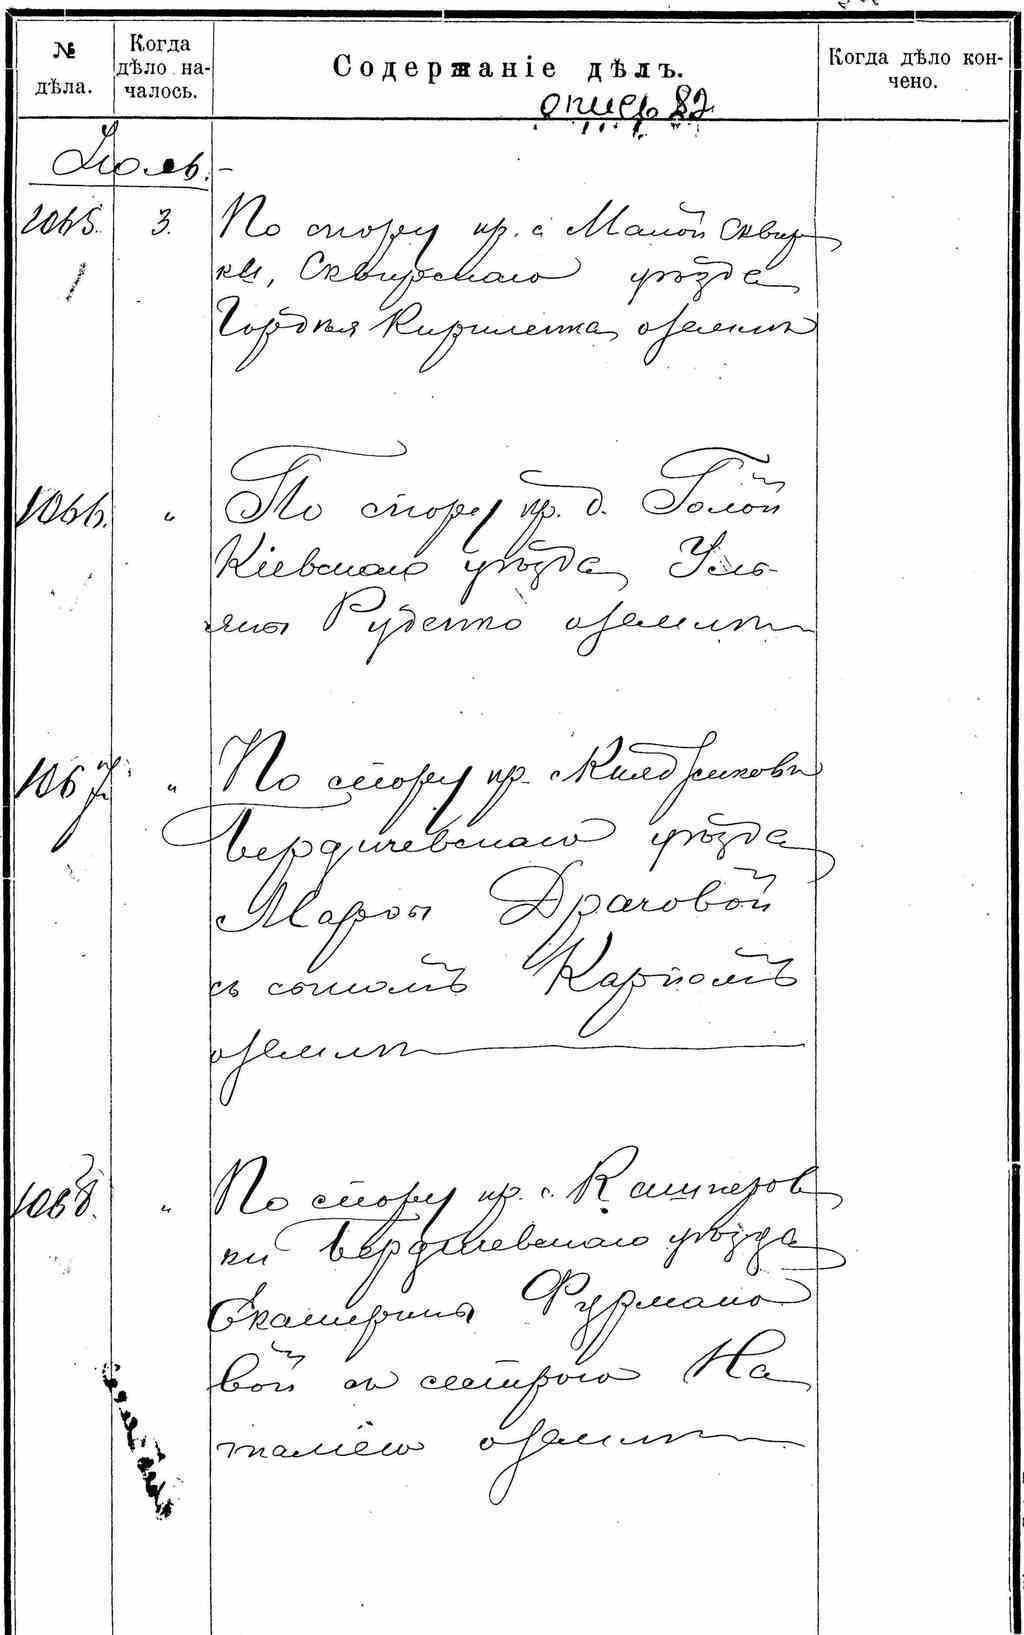 № дѣла.
Когда дѣло началось.
Содержаніе дѣлъ.
Когда дѣло кончено.
опись 82
Іюль.
1065. 3. По спору кр. с. Малой Сквир
ки, Сквирскаго уѣзда
Гордѣя Кириленка о землѣ
1066. " По спору кр. д. Голой
Кіевскаго уѣзда Уль-
яны Руденко о землѣ
1067 " По спору кр. с.
Бердичевскаго уѣзда
Марфы Драчовой
съ сыномъ Карпомъ
о землѣ
1068. " По спору кр. с. Кашперов
ки Бердичевскаго уѣзда
Екатерины Фурмано
вой съ сестрою На
таліею о землѣ